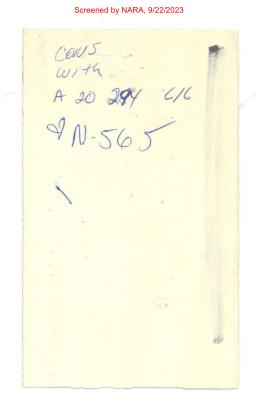 Screened by NARA, 9/22/2023
CONS
with
A 20 294 616
N-565